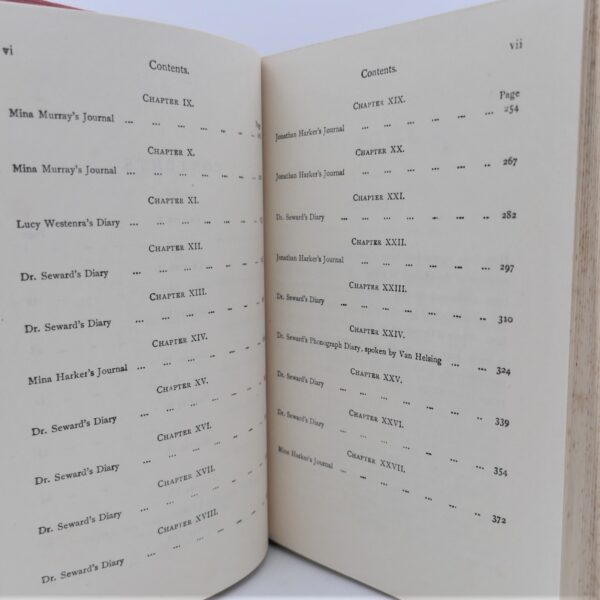 vi
Contents.
CHAPTER IX.
Mina Murray's Journal ... ... ... ... ... ...
CHAPTER X.
Mina Murray's Journal ... ... ... ... ... ...
CHAPTER XI.
Lucy Westenra's Diary ... ... ... ... ... ...
CHAPTER XII.
Dr. Seward's Diary ... ... ... ... ... ...
CHAPTER XIII.
Dr. Seward's Diary ... ... ... ... ... ...
CHAPTER XIV.
Mina Harker's Journal ... ... ... ... ... ...
CHAPTER XV.
Dr. Seward's Diary ... ... ... ... ... ...
CHAPTER XVI.
Dr. Seward's Diary ... ... ... ... ... ...
CHAPTER XVII.
Dr. Seward's Diary ... ... ... ... ... ...
CHAPTER XVIII.
Dr. Seward's Diary ... ... ... ... ... ...
vii
Contents.
CHAPTER XIX.
Page
Jonathan Harker's Journal ... ... ... ... ... 254
CHAPTER XX.
Jonathan Harker's Journal ... ... ... ... ... 267
CHAPTER XXI.
Dr. Seward's Diary ... ... ... ... ... ... 282
CHAPTER XXII.
Jonathan Harker's Journal ... ... ... ... ... 297
CHAPTER XXIII.
Dr. Seward's Diary ... ... ... ... ... ... 310
CHAPTER XXIV.
Dr. Seward's Phonograph Diary, spoken by Van Helsing ... ... 324
CHAPTER XXV.
Dr. Seward's Diary ... ... ... ... ... ... 339
CHAPTER XXVI.
Dr. Seward's Diary ... ... ... ... ... ... 354
CHAPTER XXVII.
Mina Harker's Journal ... ... ... ... ... 372